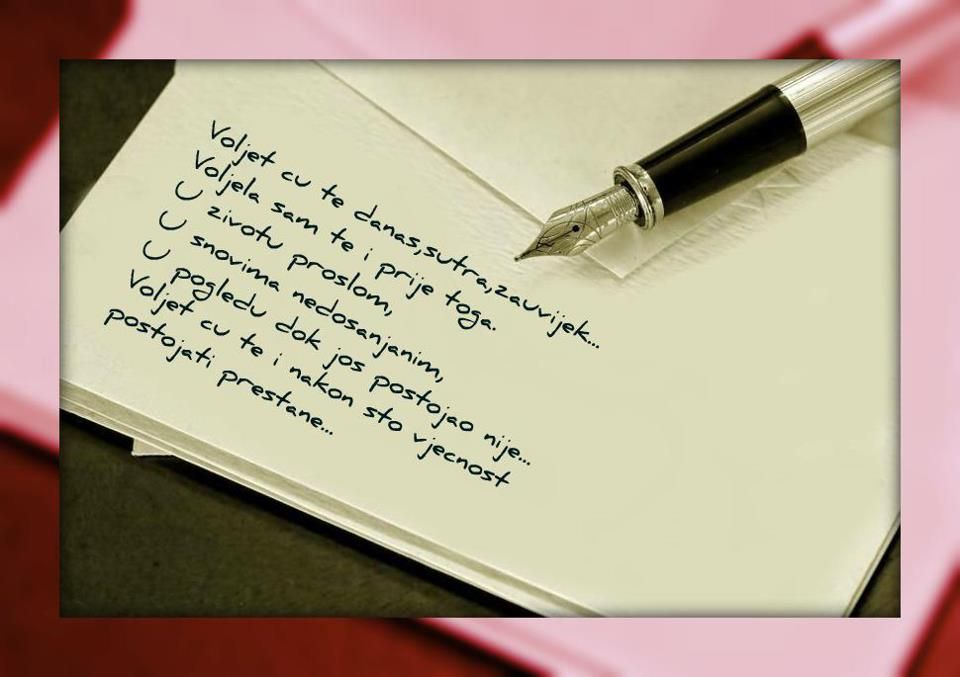 Voljet cu te danas,sutra,zauvijek...
Voljela sam te i prije toga.
U zivotu proslom,
U snovima nedosanjanim,
U pogledu dok jos postojao nije...
Voljet cu te i nakon sto vjecnost
postojati prestane...